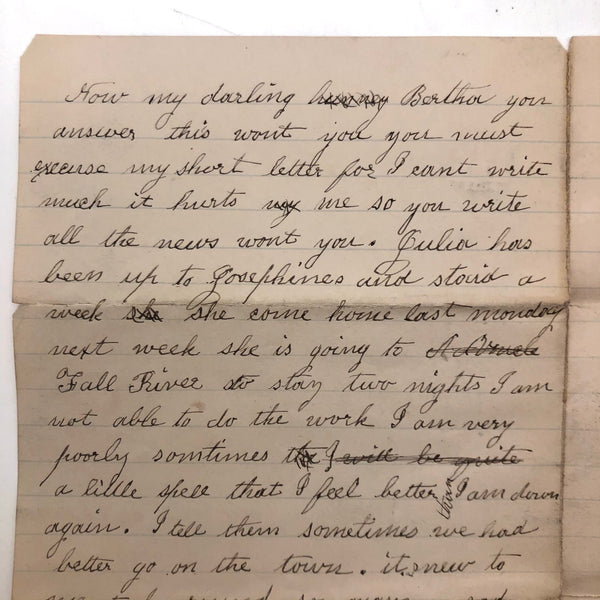 Now my darling Bertha you
answer this wont you you must
excuse my short letter for I cant write
much it hurts my me so you write
all the news wont you. Julia has
been up to Josephines and staid a
week she She come home last monday
next week she is going to
Fall River to stay two nights I am
not able to do the work I am very
poorly somtimes I will be quite
a little spell that I feel better then I am down
again. I tell them sometimes we had
better go on the town. its new to